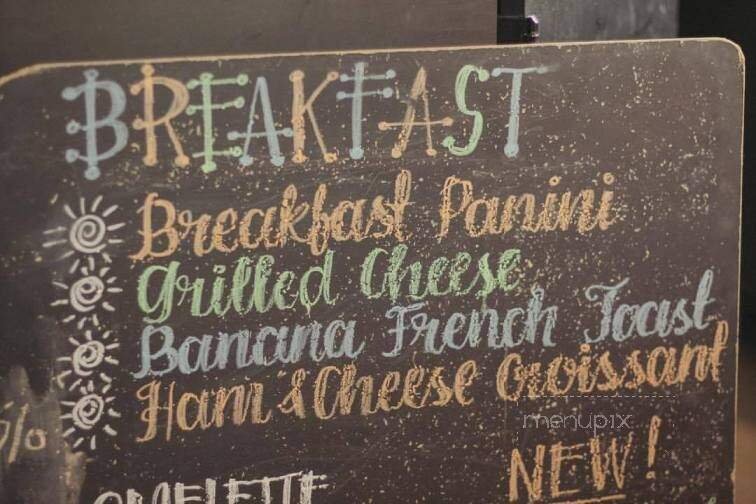 BREAKFAST
Breakfast Panini
Grilled Cheese
Banana French Toast
Ham & Cheese Croissant
%
menupix
NEW!
OMELETTE